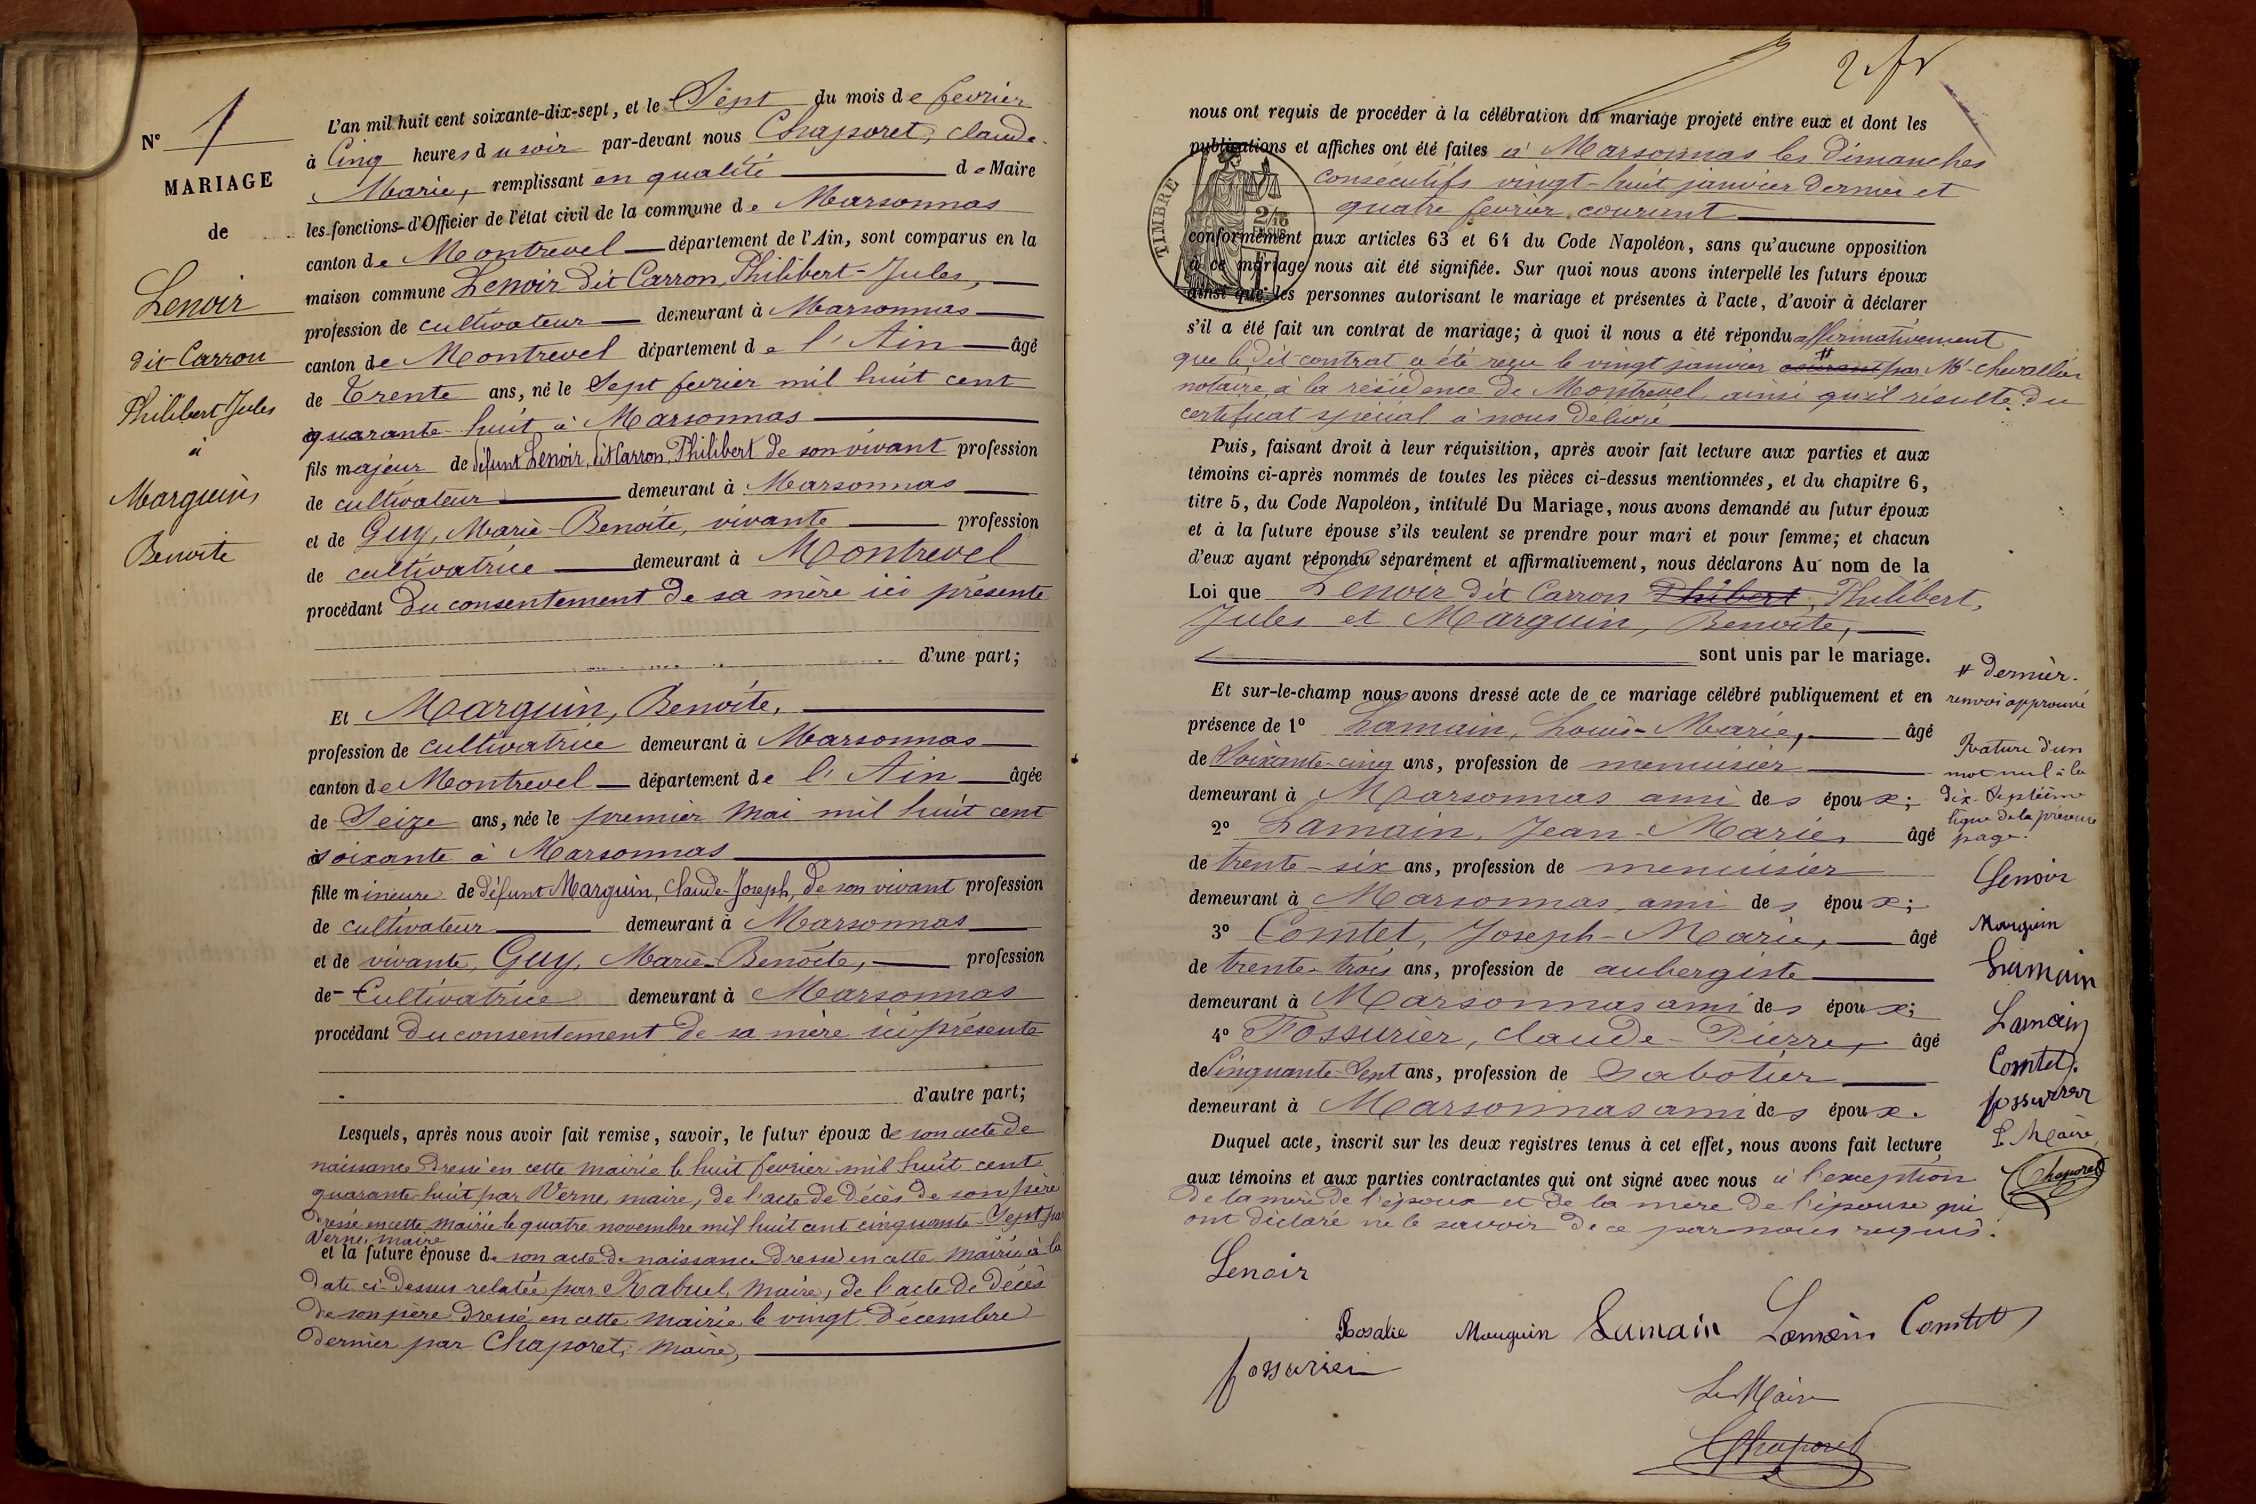 N° 1
MARIAGE
de
Lenoir
dit Carron
Philibert Jules
à
Marguin,
Benoite
L'an mil huit cent soixante-dix-sept, et le Sept du mois de fevrier
à Cinq heures du soir par-devant nous Chaporet, Claude
Marie, remplissant en qualité de Maire
les fonctions d'Officier de l'état civil de la commune de Marsonnas
canton de Montrevel département de l'Ain, sont comparus en la
maison commune Lenoir dit Carron, Philibert-Jules,
profession de cultivateur demeurant à Marsonnas
canton de Montrevel département de l'Ain âgé
de Trente ans, né le Sept fevrier mil huit cent
quarante-huit à Marsonnas
fils majeur de défunt Lenoir, dit Carron, Philibert de son vivant profession
de cultivateur demeurant à Marsonnas
et de Guy, Marie-Benoite, vivante profession
de cultivatrice demeurant à Montrevel
procédant du consentement de sa mère ici présente
d'une part;
Et Marguin, Benoite,
profession de cultivatrice demeurant à Marsonnas
canton de Montrevel département de l'Ain âgée
de Seize ans, née le premier Mai mil huit cent
soixante à Marsonnas
fille mineure de défunt Marguin, Claude-Joseph, de son vivant profession
de cultivateur demeurant à Marsonnas
et de vivante, Guy, Marie-Benoite, profession
de Cultivatrice demeurant à Marsonnas
procédant du consentement de sa mère ici présente
d'autre part;
Lesquels, après nous avoir fait remise, savoir, le futur époux de son acte de
naissance dressé en cette mairie le huit fevrier mil huit cent
quarante-huit par Verne, maire, de l'acte de décès de son père
dressé en cette mairie le quatre novembre mil huit cent cinquante-Sept par
Verne, maire
et la future épouse de son acte de naissance dressé en cette mairie à la
date ci-dessus relatée par Rabuel, maire, de l'acte de décès
de son père dressé en cette mairie le vingt décembre
dernier par Chaporet, maire,
2 fr
nous ont requis de procéder à la célébration du mariage projeté entre eux et dont les
publications et affiches ont été faites à Marsonnas les dimanches
consécutifs vingt-huit janvier dernier et
quatre fevrier courant
TIMBRE
2/10
EN SUS
conformément aux articles 63 et 64 du Code Napoléon, sans qu'aucune opposition
à ce mariage nous ait été signifiée. Sur quoi nous avons interpellé les futurs époux
ainsi que les personnes autorisant le mariage et présentes à l'acte, d'avoir à déclarer
s'il a été fait un contrat de mariage; à quoi il nous a été répondu affirmativement
que le dit contrat a été reçu le vingt janvier # courant par Me Chevallier
notaire à la résidence de Montrevel ainsi qu'il résulte du
certificat spécial à nous délivré
Puis, faisant droit à leur réquisition, après avoir fait lecture aux parties et aux
témoins ci-après nommés de toutes les pièces ci-dessus mentionnées, et du chapitre 6,
titre 5, du Code Napoléon, intitulé Du Mariage, nous avons demandé au futur époux
et à la future épouse s'ils veulent se prendre pour mari et pour femme; et chacun
d'eux ayant répondu séparément et affirmativement, nous déclarons Au nom de la
Loi que Lenoir dit Carron Phibert, Philibert,
Jules et Marguin, Benoite,
sont unis par le mariage.
Et sur-le-champ nous avons dressé acte de ce mariage célébré publiquement et en
présence de 1° Lamain, Louis-Marie, âgé
de Soixante-cinq ans, profession de menuisier
demeurant à Marsonnas ami des époux;
2° Lamain, Jean-Marie, âgé
de trente-six ans, profession de menuisier
demeurant à Marsonnas, ami des époux;
3° Comtet, Joseph-Marie, âgé
de trente-trois ans, profession de aubergiste
demeurant à Marsonnas ami des époux;
4° Fossurier, Claude-Pierre, âgé
de Cinquante-Sept ans, profession de Sabotier
demeurant à Marsonnas ami des époux.
Duquel acte, inscrit sur les deux registres tenus à cet effet, nous avons fait lecture
aux témoins et aux parties contractantes qui ont signé avec nous à l'exception
de la mère de l'époux et de la mère de l'épouse qui
ont déclaré ne le savoir de ce par nous requis.
# dernier.
renvoi approuvé
Rature d'un
mot nul à la
dix-septième
ligne de la présente
page.
Lenoir
Marguin
Lamain
Lamain
Comtet
fossurier
Le Maire,
Chaporet
Lenoir
Rosalie Marguin Lamain Lamain Comtet
fossurier
Le Maire
Chaporet